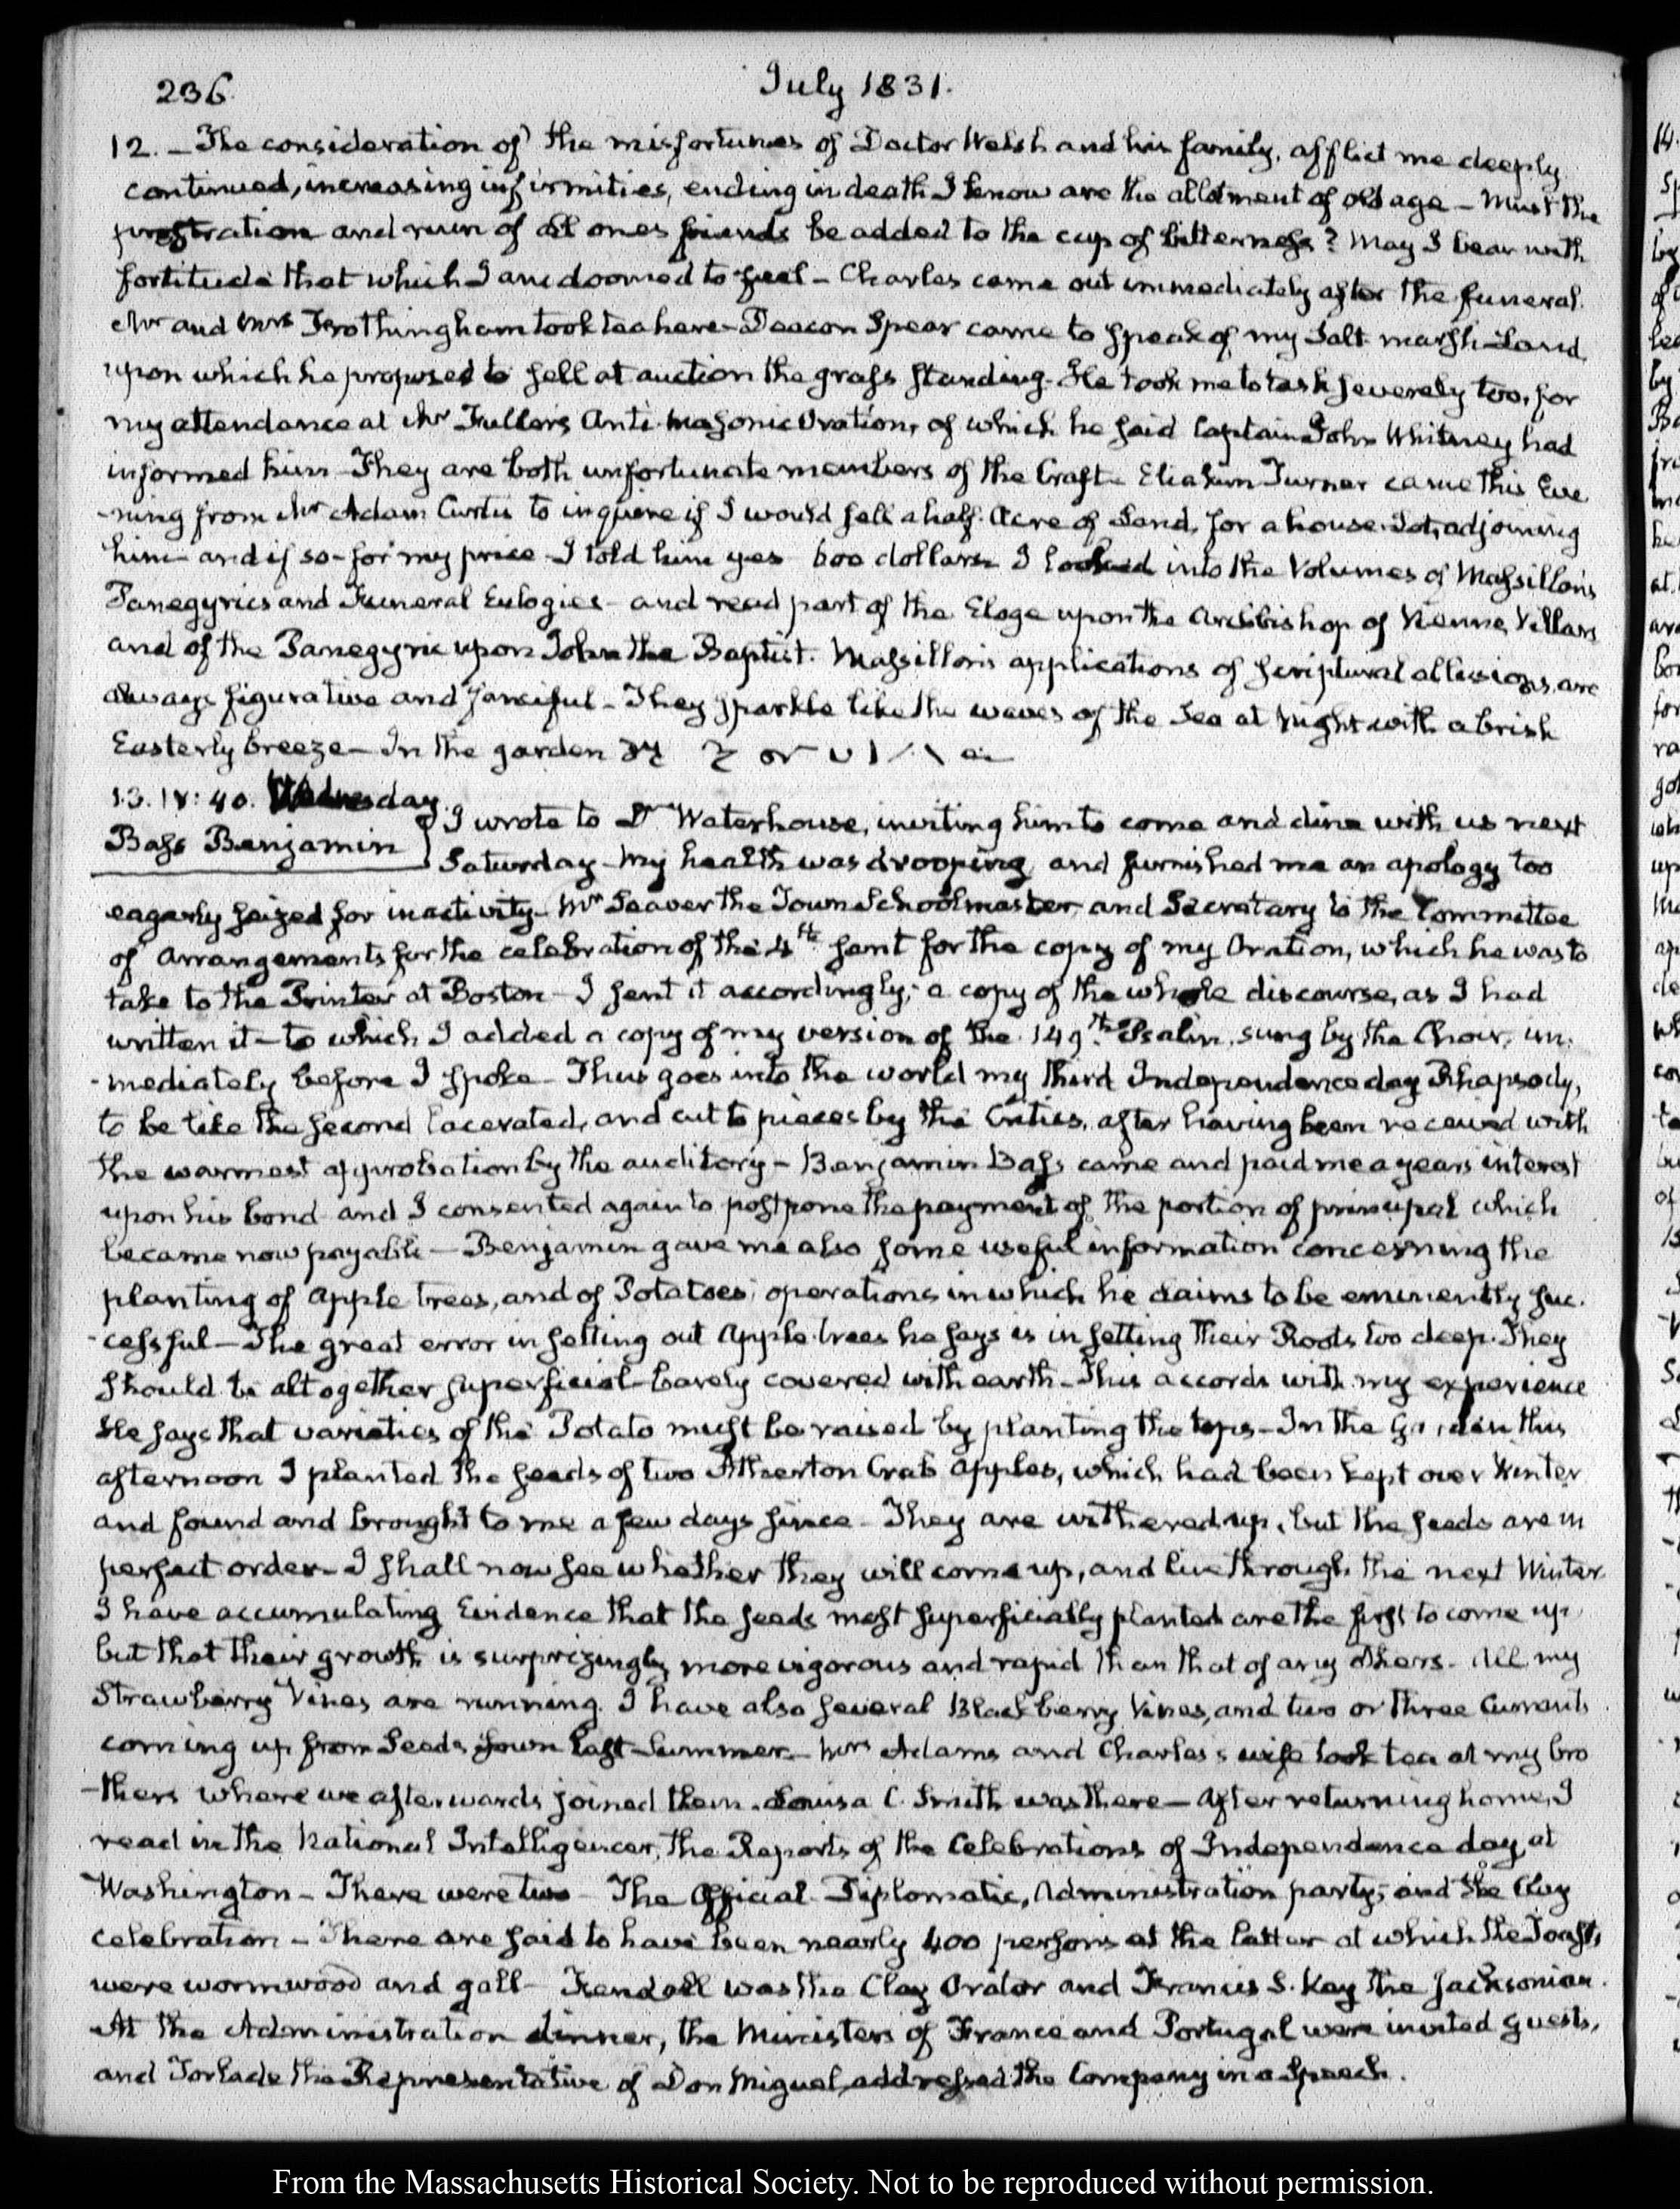 236.
July 1831.
12. – The consideration of the misfortunes of Doctor Welsh and his family, afflict me deeply
continued, increasing infirmities, ending in death I know are the allotment of old age – Must the
prostration and ruin of all ones friends be added to the cup of bitterness? May I bear with
fortitude that which I am doomed to feel – Charles came out immediately after the funeral.
Mr and Mrs Frothingham took tea here – Deacon Spear came to speak of my Salt marsh Land
upon which he proposed to sell at auction the grass standing. He took me to task severely too, for
my attendance at Mr Fuller's Anti-Masonic Oration, of which he said Captain John Whitney had
informed him – They are both unfortunate members of the Craft – Eliakim Turner came this Eve
-ning from Mr Adam Curtis to inquire if I would sell a half Acre of Land, for a house Lot, adjoining
him – and if so – for my price – I told him yes 600 dollars I looked into the Volumes of Massillon's
Panegyrics and Funeral Eulogies – and read part of the Eloge upon the Archbishop of Vienne, Villars
and of the Panegyric upon John the Baptist. Massillon's applications of scriptural allusions, are
always figurative and fanciful – They sparkle like the waves of the Sea at Night with a brisk
Easterly breeze – In the garden
13. IV: 40. Wednesday.
Bass Benjamin
I wrote to Dr Waterhouse, inviting him to come and dine with us next
Saturday – My health was drooping, and furnished me an apology too
eagerly seized for inactivity – Mr Seaver the Town Schoolmaster, and Secretary to the Committee
of Arrangements for the celebration of the 4th sent for the copy of my Oration, which he was to
take to the Printer at Boston – I sent it accordingly; a copy of the whole discourse, as I had
written it – to which I added a copy of my version of the 149th Psalm, sung by the Choir, im-
-mediately before I spoke – Thus goes into the world my third Independence day Rhapsody,
to be like the second lacerated, and cut to pieces by the Critics, after having been received with
the warmest approbation by the auditory – Benjamin Bass came and paid me a years interest
upon his bond and I consented again to postpone the payment of the portion of principal which
became now payable – Benjamin gave me also some useful information concerning the
planting of Apple trees, and of Potatoes; operations in which he claims to be eminently suc-
-cessful – The great error in setting out Apple-trees he says is in setting their Roots too deep. They
should be altogether superficial – barely covered with earth – This accords with my experience
He says that varieties of the Potato must be raised by planting the tops – In the Garden this
afternoon I planted the seeds of two Atherton Crab apples, which had been kept over Winter
and found and brought to me a few days since – They are withered up, but the seeds are in
perfect order – I shall now see whether they will come up, and live through the next Winter.
I have accumulating Evidence that the seeds most superficially planted are the first to come up
but that their growth is surprizingly more vigorous and rapid than that of any others – All my
Strawberry Vines are running. I have also several Blackberry Vines, and two or three Currants
coming up from Seeds sown last Summer – Mrs Adams and Charles's wife took tea at my bro
-thers where we afterwards joined them. Louisa C. Smith was there – After returning home, I
read in the National Intelligencer, the Reports of the Celebrations of Independence day, at
Washington – There were two – The Official Diplomatic, Administration party; and the Clay
celebration – There are said to have been nearly 400 persons at the latter at which the Toasts,
were wormwood and gall – Kendall was the Clay Orator and Francis S. Kay the Jacksonian.
At the Administration dinner, the Ministers of France and Portugal were invited guests,
and Torlade the Representative of Don Miguel, addressed the Company in a Speech.
From the Massachusetts Historical Society. Not to be reproduced without permission.